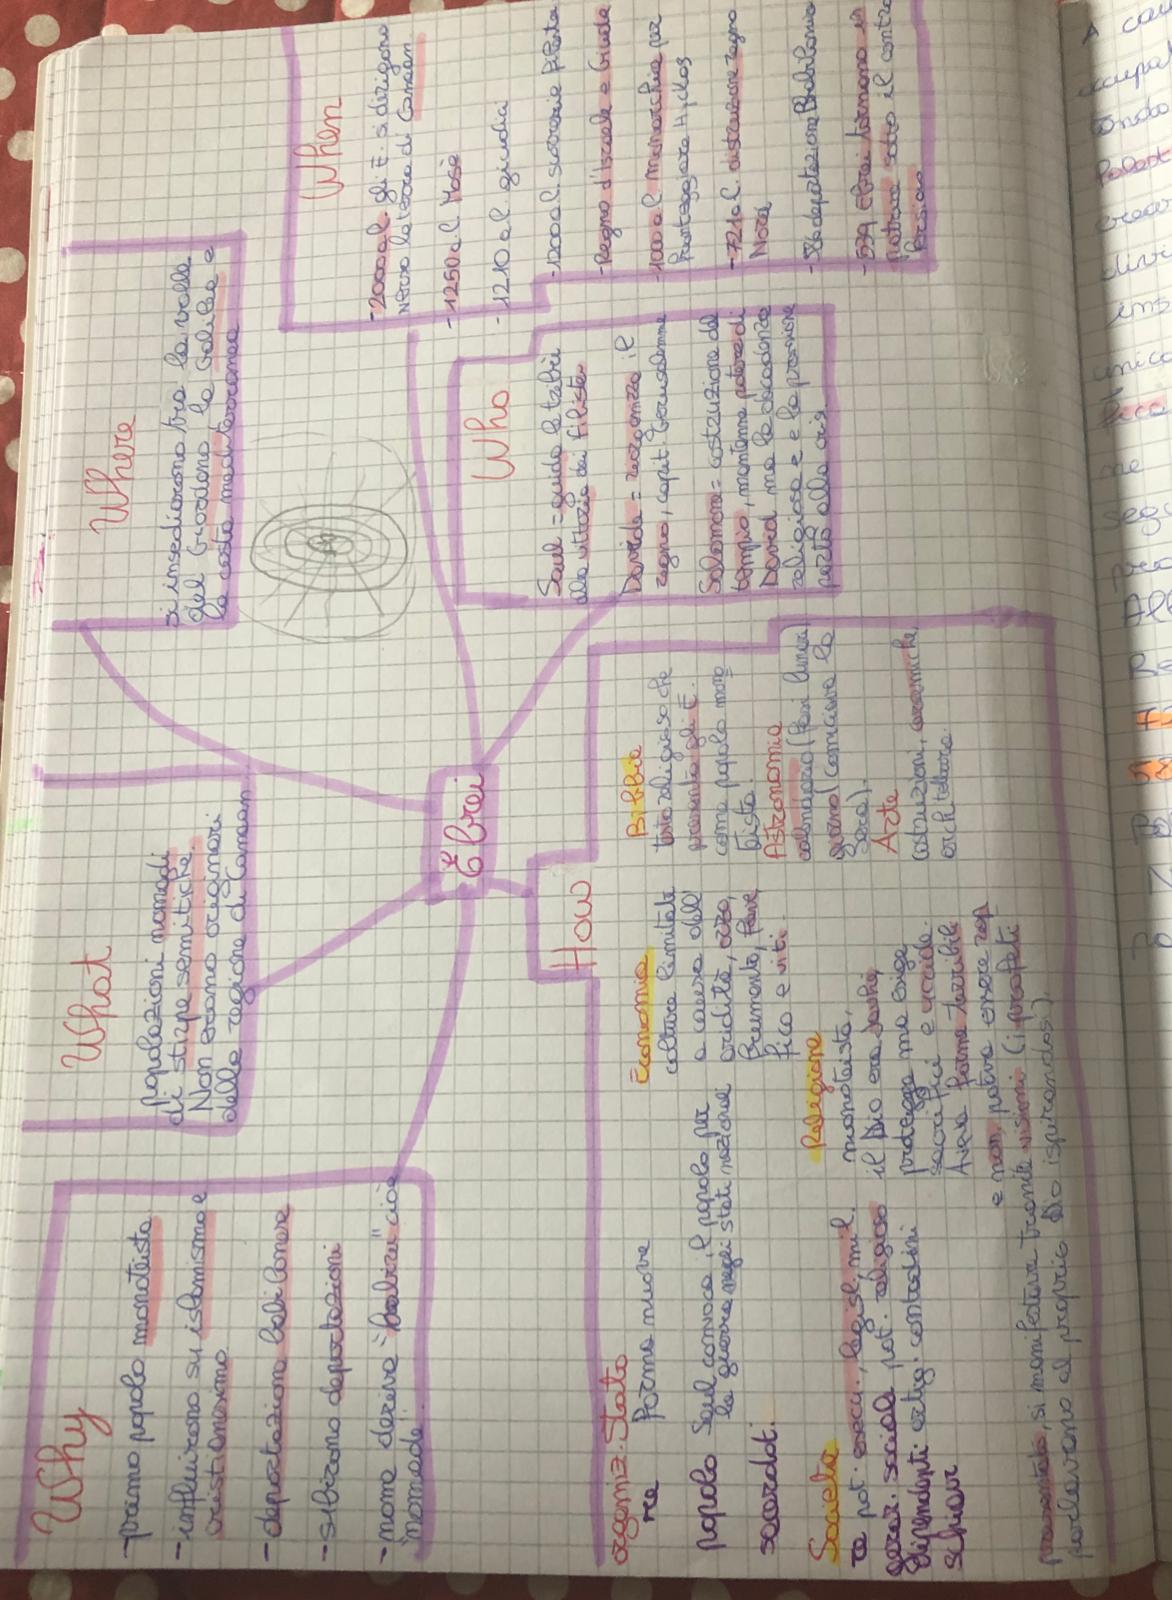 Why
-primo popolo monoteista
-influirono su islamismo e
cristianesimo
-deportazione babilonese
-subirono deportazioni
-nome deriva "habiru" cioè
"nomade".
What
popolazioni nomadi
di stirpe semitiche.
Non erano originari
della regione di Canaan
Where
si insediarono tra la valle
del Giordano la Galilea e
la costa mediterranea
When
-2000 a.C. gli E. si dirigono
verso la terra di Canaan
-1250 a.C. Mosè
-1210 a.C. giudici
-1200 a.C.
-Regno d'Israele e Giuda
-1000 a.C. monarchia per
fronteggiare Hyksos
-721 a.C. distruzione regno
Nord
-586 deportazione Babilonia
-539 Ebrei tornano in
patria sotto il contr.
Persiano
Ebrei
Who
Saul = guida le tribù
alla vittoria dei Filistei
Davide = riorganizzò il
regno, capit. Gerusalemme
Salomone = costruzione del
tempio, mantenne potere di
David ma la decadenza
religiosa e la pressione
portò alla crisi
How
organiz. Stato
Forma nuova
re
popolo Saul convoca il popolo per
la guerra negli stati
sacerdoti.
Società
re pot. esecu., legisl, mil.
gerar. sociale pot. religioso
dipendenti artig. contadini
schiavi
Economia
colture limitate
a causa dell'
aridità, orzo,
frumento, fave,
fico e viti.
Religione
monoteista,
il Dio era Javhè,
protegge ma esige
sacrifici e
Aveva forma terribile
e non poteva essere rap
presentato, si manifestava tramite visioni (i profeti
parlavano al proprio Dio ispirandosi).
Bibbia
testo religioso che
presenta gli E.
come popolo mono
teista.
Astronomia
calendario (fasi lunari,
giorno comincia la
sera).
Arte
costruzioni, ceramiche,
architettura.